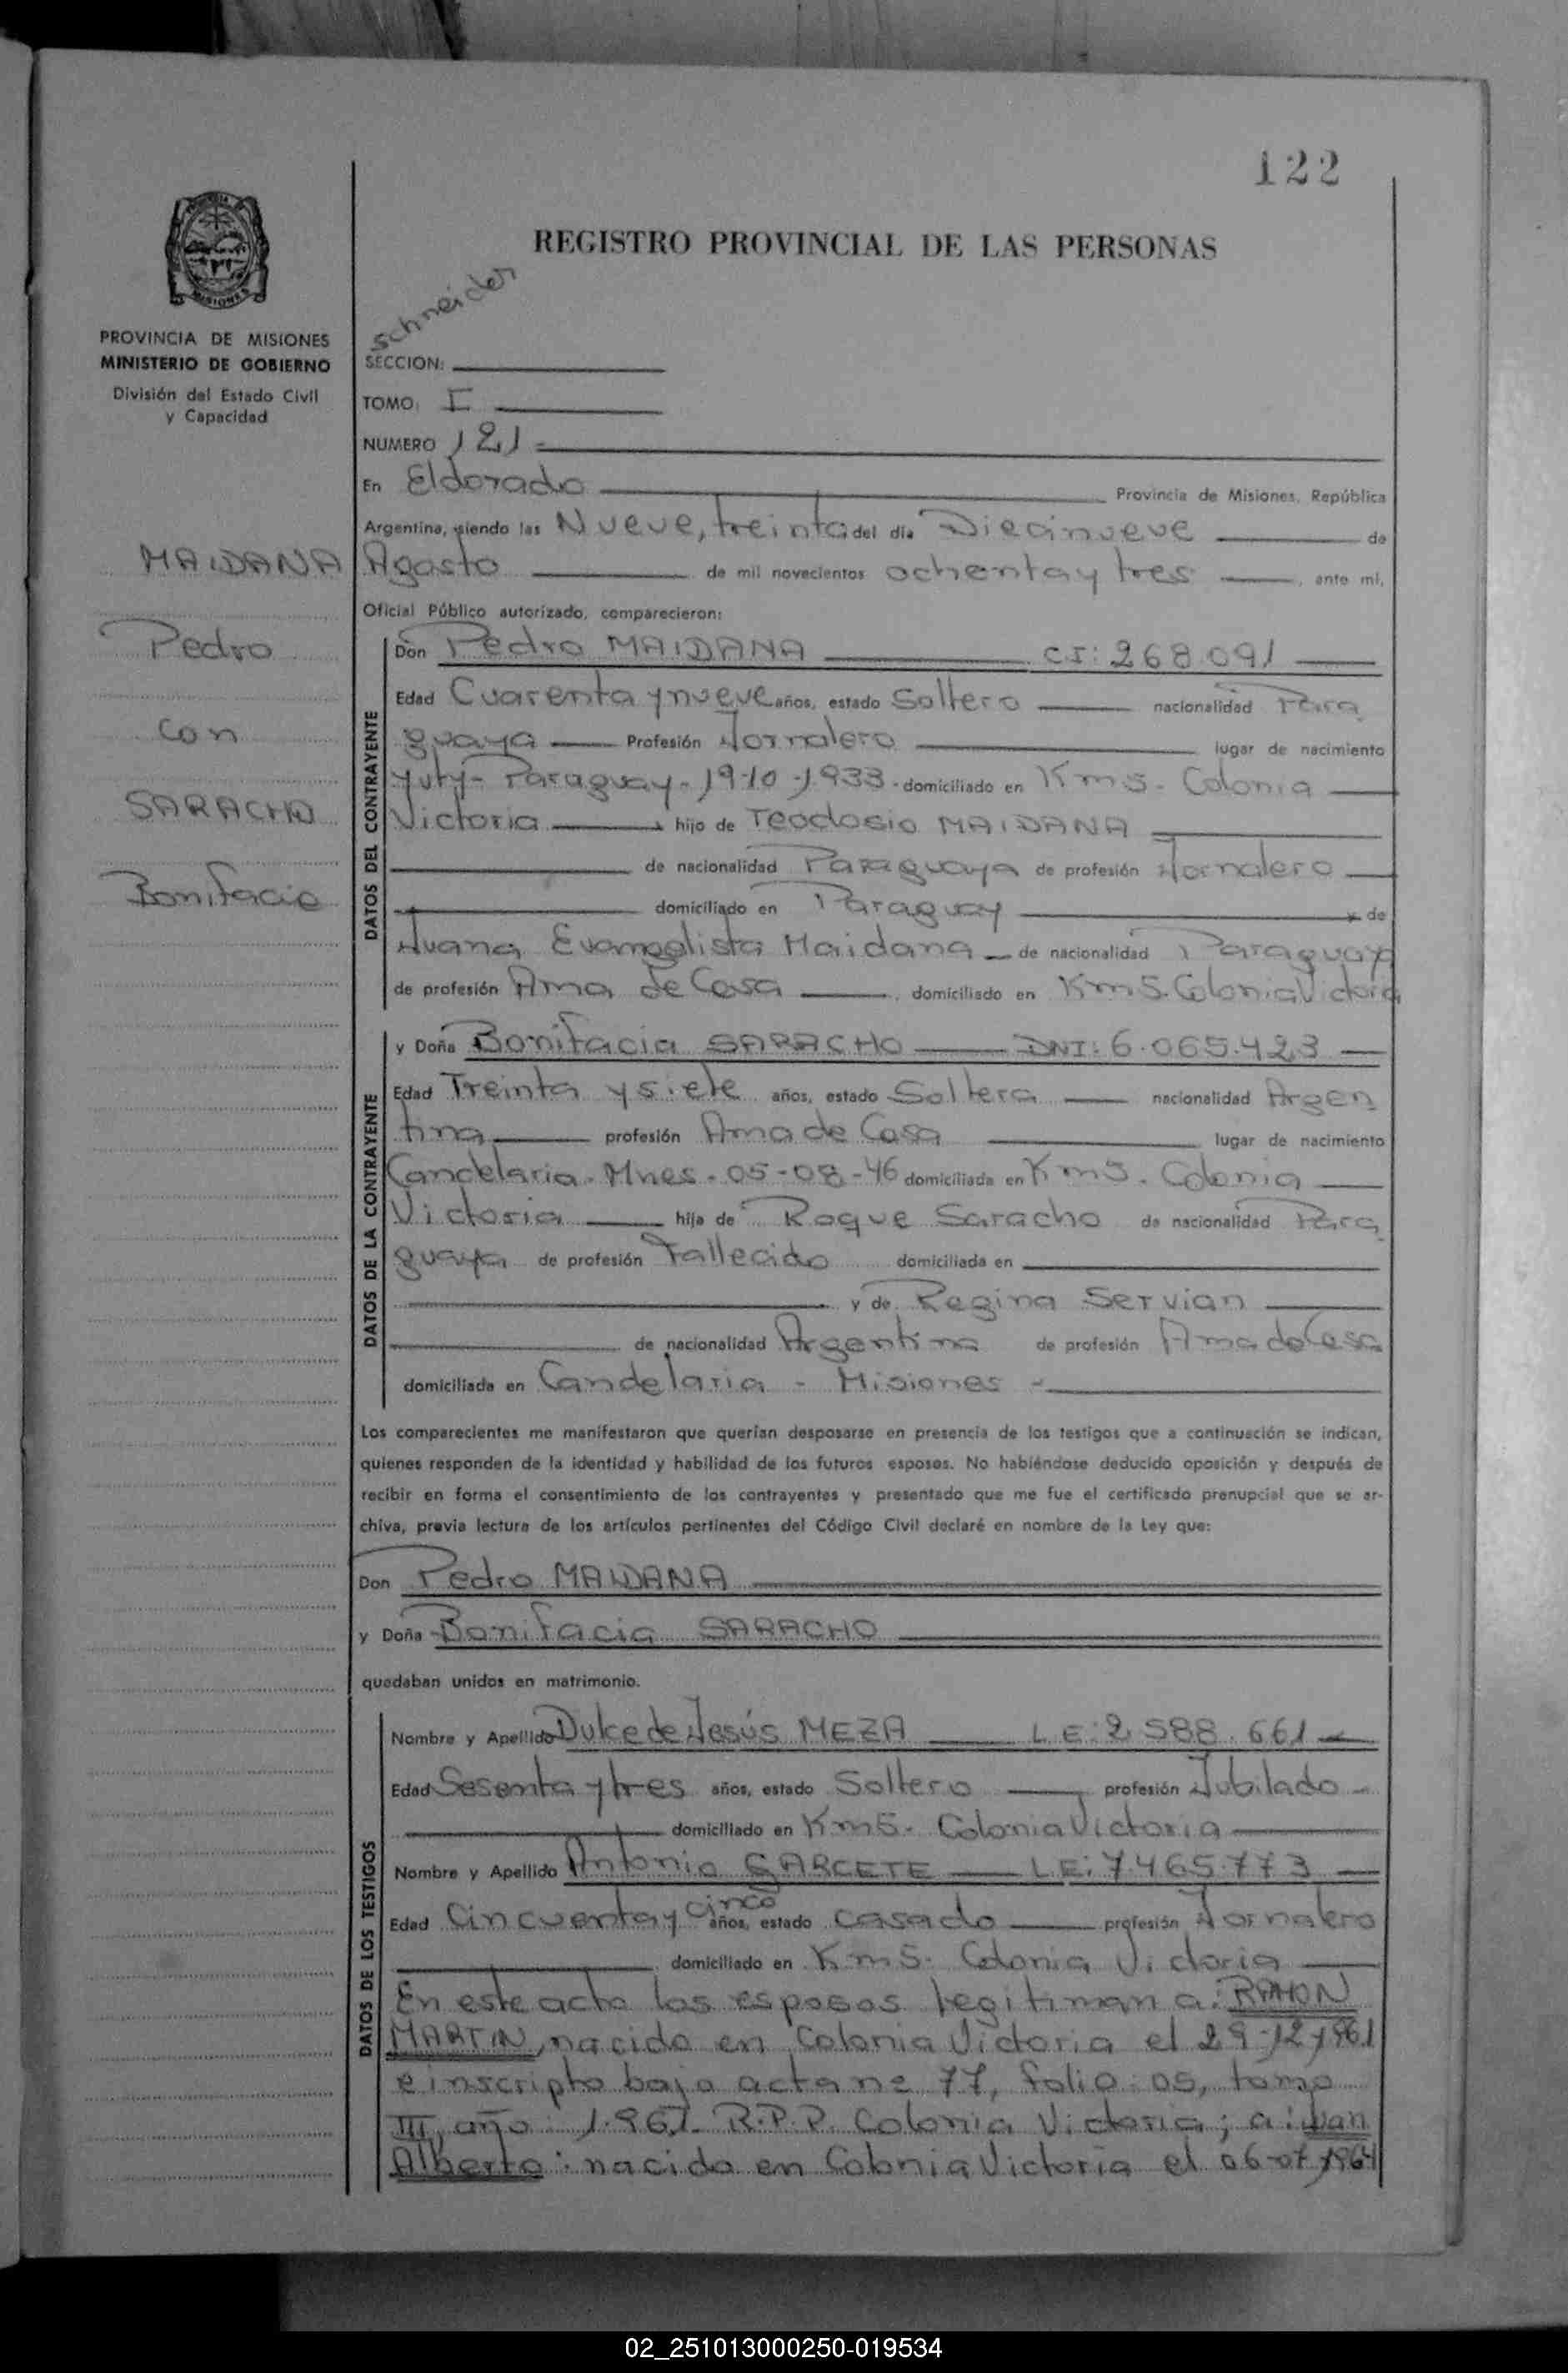 122
REGISTRO PROVINCIAL DE LAS PERSONAS
MISIONES
PROVINCIA DE MISIONES
MINISTERIO DE GOBIERNO
División del Estado Civil
y Capacidad
Schneider
SECCION:
TOMO: I
NUMERO 121 -
En Eldorado Provincia de Misiones, República
Argentina, siendo las Nueve, treinta del día Diecinueve de
Agosto de mil novecientos ochenta y tres, ante mí,
Oficial Público autorizado, comparecieron:
MAIDANA
Pedro
con
SARACHO
Bonifacia
DATOS DEL CONTRAYENTE
Don Pedro MAIDANA C.I: 268.091
Edad Cuarenta y nueve años, estado Soltero nacionalidad Para
guaya Profesión Jornalero lugar de nacimiento
Yuty - Paraguay - 19-10-1933 - domiciliado en Km 5 - Colonia
Victoria, hijo de Teodosio MAIDANA
de nacionalidad Paraguaya de profesión Jornalero
domiciliado en Paraguay y de
Juana Evangelista Maidana de nacionalidad Paraguaya
de profesión Ama de Casa, domiciliado en Km 5. Colonia Victoria
DATOS DE LA CONTRAYENTE
y Doña Bonifacia SARACHO DNI: 6.065.423
Edad Treinta y siete años, estado Soltera nacionalidad Argen
tina profesión Ama de Casa lugar de nacimiento
Candelaria - Mnes - 05-08-46 domiciliada en Km 5. Colonia
Victoria hija de Roque Saracho de nacionalidad Para
guaya de profesión Fallecido domiciliada en
y de Regina Servian
de nacionalidad Argentina de profesión Ama de Casa
domiciliada en Candelaria - Misiones -
Los comparecientes me manifestaron que querían desposarse en presencia de los testigos que a continuación se indican,
quienes responden de la identidad y habilidad de los futuros esposos. No habiéndose deducido oposición y después de
recibir en forma el consentimiento de los contrayentes y presentado que me fue el certificado prenupcial que se ar-
chiva, previa lectura de los artículos pertinentes del Código Civil declaré en nombre de la Ley que:
Don Pedro MAIDANA
y Doña Bonifacia SARACHO
quedaban unidos en matrimonio.
DATOS DE LOS TESTIGOS
Nombre y Apellido Dulce de Jesús MEZA L.E: 2.588.661
Edad Sesenta y tres años, estado Soltero profesión Jubilado -
domiciliado en Km 5 - Colonia Victoria
Nombre y Apellido Antonio GARCETE L.E: 7.465.773
Edad Cincuenta y cinco años, estado casado profesión Jornalero
domiciliado en Km 5. Colonia Victoria
En este acto los esposos legitiman a: RAMON
MARTIN, nacido en Colonia Victoria el 29-12-1961
e inscripto bajo acta nº 77, folio: 05, tomo
III, año: 1.961. R.P.P. Colonia Victoria; a: Juan
Alberto: nacido en Colonia Victoria el 06-07-1964
02_251013000250-019534